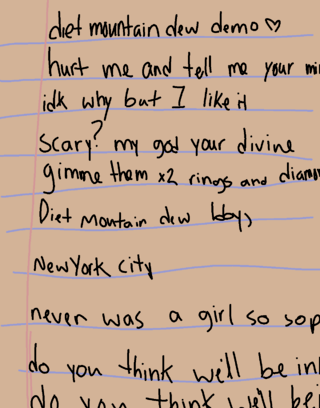 diet mountain dew demo ♡
hurt me and tell me your mi
idk why but I like it
scary? my god your divine
gimme them x2 rings and diam
Diet mountain dew bby,
New York city
never was a girl so sop
do you think we'll be in
do you think we'll be